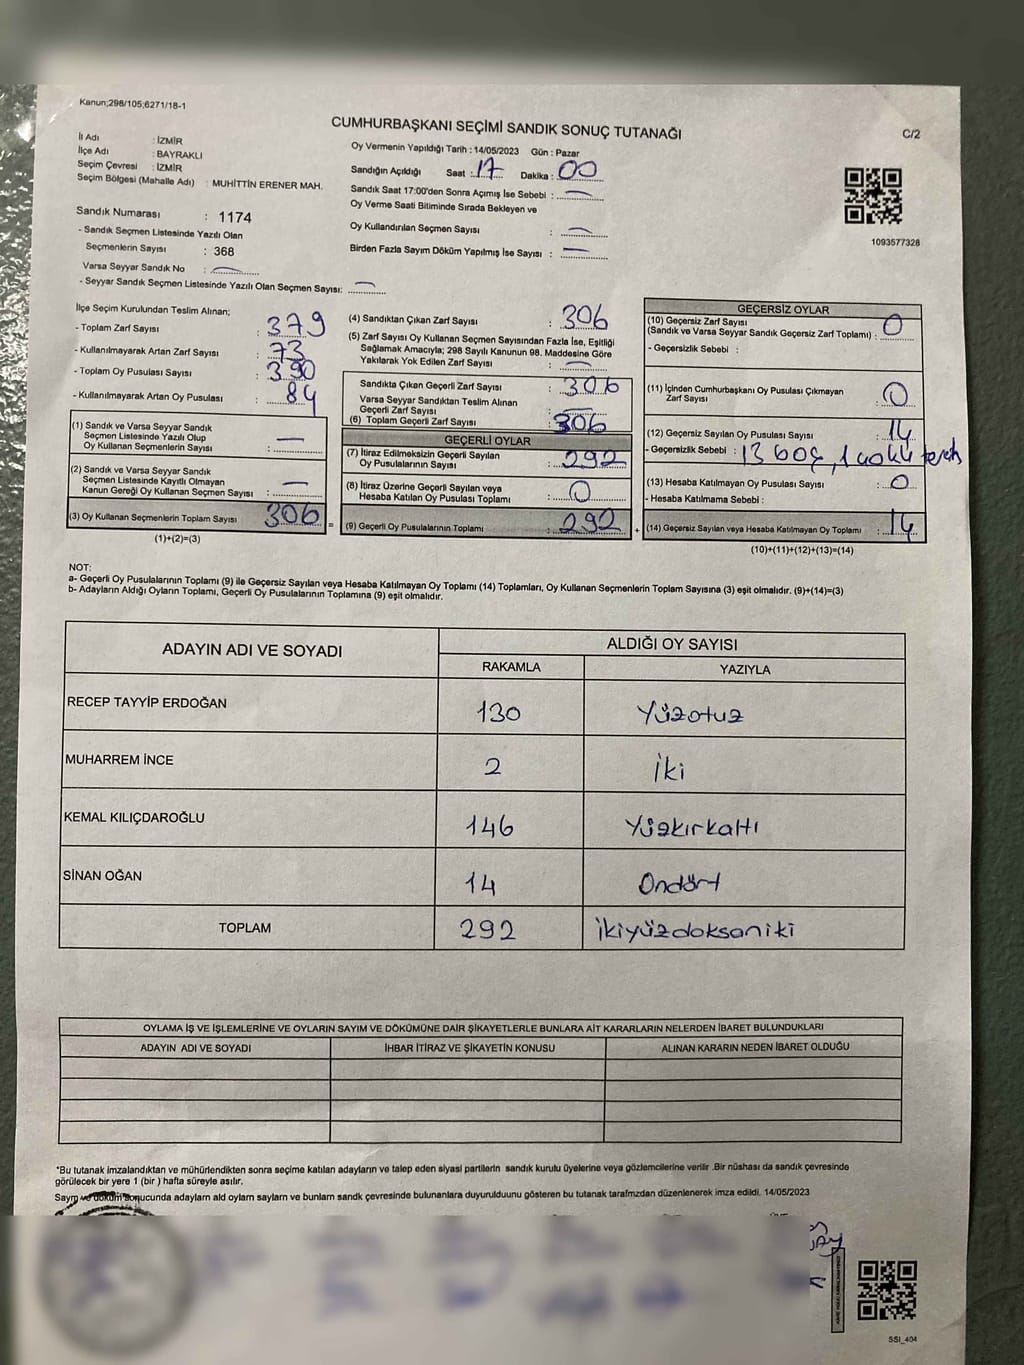 Kanun;298/105;6271/18-1
CUMHURBAŞKANI SEÇİMİ SANDIK SONUÇ TUTANAĞI
C/2
İl Adı : İZMİR
İlçe Adı : BAYRAKLI
Seçim Çevresi : İZMİR
Seçim Bölgesi (Mahalle Adı) : MUHİTTİN ERENER MAH.
Sandık Numarası : 1174
- Sandık Seçmen Listesinde Yazılı Olan
Seçmenlerin Sayısı : 368
Varsa Seyyar Sandık No : —
- Seyyar Sandık Seçmen Listesinde Yazılı Olan Seçmen Sayısı: —
Oy Vermenin Yapıldığı Tarih : 14/05/2023 Gün : Pazar
Sandığın Açıldığı Saat : 17 Dakika : 00
Sandık Saat 17:00'den Sonra Açımış İse Sebebi : —
Oy Verme Saati Bitiminde Sırada Bekleyen ve
Oy Kullandırılan Seçmen Sayısı : —
Birden Fazla Sayım Döküm Yapılmış İse Sayısı : —
1093577328
İlçe Seçim Kurulundan Teslim Alınan;
- Toplam Zarf Sayısı : 379
- Kullanılmayarak Artan Zarf Sayısı : 73
- Toplam Oy Pusulası Sayısı : 390
- Kullanılmayarak Artan Oy Pusulası : 84
(1) Sandık ve Varsa Seyyar Sandık
Seçmen Listesinde Yazılı Olup
Oy Kullanan Seçmenlerin Sayısı : —
(2) Sandık ve Varsa Seyyar Sandık
Seçmen Listesinde Kayıtlı Olmayan
Kanun Gereği Oy Kullanan Seçmen Sayısı : —
(3) Oy Kullanan Seçmenlerin Toplam Sayısı 306 =
(1)+(2)=(3)
(4) Sandıktan Çıkan Zarf Sayısı : 306
(5) Zarf Sayısı Oy Kullanan Seçmen Sayısından Fazla İse, Eşitliği
Sağlamak Amacıyla; 298 Sayılı Kanunun 98. Maddesine Göre
Yakılarak Yok Edilen Zarf Sayısı : —
Sandıkta Çıkan Geçerli Zarf Sayısı : 306
Varsa Seyyar Sandıktan Teslim Alınan
Geçerli Zarf Sayısı : —
(6) Toplam Geçerli Zarf Sayısı : 306
GEÇERLİ OYLAR
(7) İtiraz Edilmeksizin Geçerli Sayılan
Oy Pusulalarının Sayısı : 292
(8) İtiraz Üzerine Geçerli Sayılan veya
Hesaba Katılan Oy Pusulası Toplamı : 0
(9) Geçerli Oy Pusulalarının Toplamı : 292 +
GEÇERSİZ OYLAR
(10) Geçersiz Zarf Sayısı
(Sandık ve Varsa Seyyar Sandık Geçersiz Zarf Toplamı) : 0
- Geçersizlik Sebebi :
(11) İçinden Cumhurbaşkanı Oy Pusulası Çıkmayan
Zarf Sayısı : 0
(12) Geçersiz Sayılan Oy Pusulası Sayısı : 14
- Geçersizlik Sebebi : 13 boş, 1 çoklu tercih
(13) Hesaba Katılmayan Oy Pusulası Sayısı : 0
- Hesaba Katılmama Sebebi :
(14) Geçersiz Sayılan veya Hesaba Katılmayan Oy Toplamı : 14
(10)+(11)+(12)+(13)=(14)
NOT:
a- Geçerli Oy Pusulalarının Toplamı (9) ile Geçersiz Sayılan veya Hesaba Katılmayan Oy Toplamı (14) Toplamları, Oy Kullanan Seçmenlerin Toplam Sayısına (3) eşit olmalıdır. (9)+(14)=(3)
b- Adayların Aldığı Oyların Toplamı, Geçerli Oy Pusulalarının Toplamına (9) eşit olmalıdır.
ADAYIN ADI VE SOYADI
ALDIĞI OY SAYISI
RAKAMLA YAZIYLA
RECEP TAYYİP ERDOĞAN 130 Yüzotuz
MUHARREM İNCE 2 İki
KEMAL KILIÇDAROĞLU 146 Yüzkırkaltı
SİNAN OĞAN 14 Ondört
TOPLAM 292 İkiyüzdoksaniki
OYLAMA İŞ VE İŞLEMLERİNE VE OYLARIN SAYIM VE DÖKÜMÜNE DAİR ŞİKAYETLERLE BUNLARA AİT KARARLARIN NELERDEN İBARET BULUNDUKLARI
ADAYIN ADI VE SOYADI İHBAR İTİRAZ VE ŞİKAYETİN KONUSU ALINAN KARARIN NEDEN İBARET OLDUĞU
*Bu tutanak imzalandıktan ve mühürlendikten sonra seçime katılan adayların ve talep eden siyasi partilerin sandık kurulu üyelerine veya gözlemcilerine verilir .Bir nüshası da sandık çevresinde
görülecek bir yere 1 (bir ) hafta süreyle asılır.
Sayım ve döküm sonucunda adayların ald oylam saylarn ve bunlarn sandk çevresinde bulunanlara duyurulduunu gösteren bu tutanak tarafmzdan düzenlenerek imza edildi. 14/05/2023
SSI_404